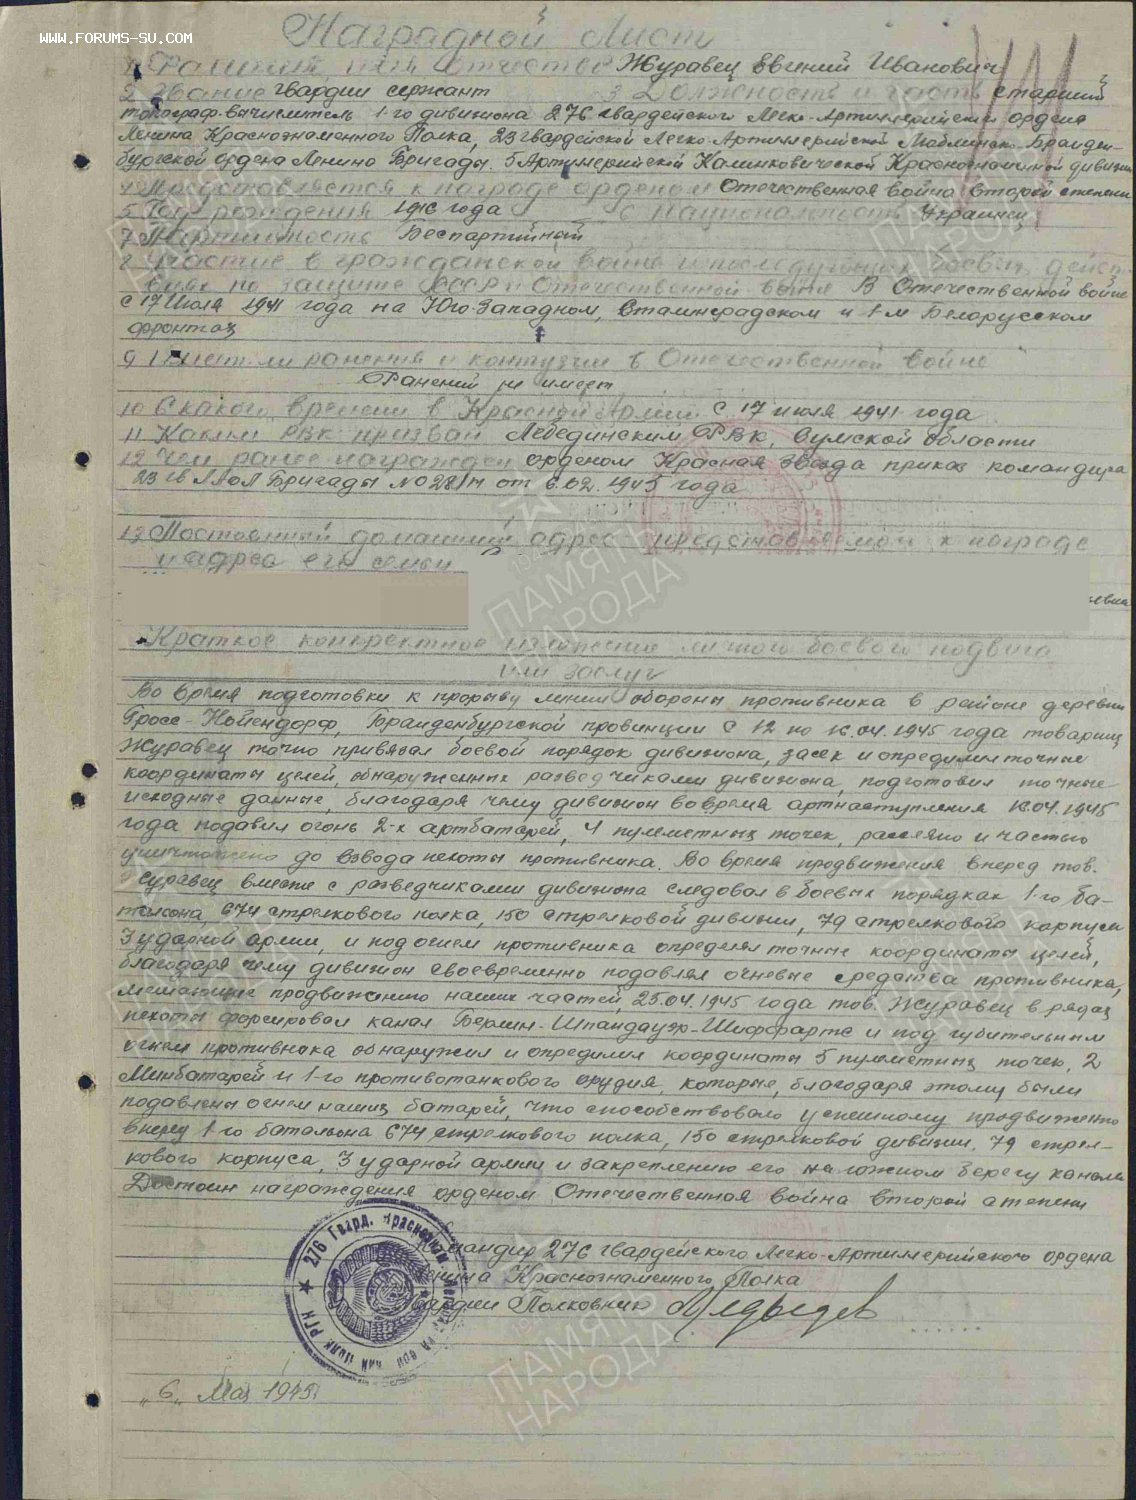 WWW.FORUMS-SU.COM
Наградной Лист
1 Фамилия, имя отчество Журавец Евгений Иванович
2 Звание гвардии сержант 3 Должность и часть старший
топограф-вычислитель 1-го дивизиона 276 гвардейского Легко-Артиллерийского ордена
Ленина Краснознаменного Полка, 23 гвардейской Легко-Артиллерийской Люблинско-Бранден-
бургской ордена Ленина Бригады. 5 Артиллерийской Калинковической Краснознаменной дивизии
4 Представляется к награде орденом Отечественная война второй степени
5 Год рождения 1916 года 6 Национальность Украинец
7 Партийность Беспартийный
8 Участие в гражданской войне и последующих боевых дейст-
виях по защите СССР и Отечественной войне В Отечественной войне
с 17 Июля 1941 года на Юго-Западном, Сталинградском и 1-м Белорусском
фронтах
9 Имеет ли ранения и контузии в Отечественной войне
Ранений не имеет
10 С какого времени в Красной Армии С 17 июля 1941 года
11 Каким РВК призван Лебединским РВК, Сумской области
12 Чем ранее награжден орденом Красная Звезда приказ командира
23 гв ЛАОЛ Бригады № 028/н от 6.02.1945 года
13 Постоянный домашний адрес представляемого к награде
и адрес его семьи
Краткое конкретное изложение личного боевого подвига
или заслуг
Во время подготовки к прорыву линии обороны противника в районе деревни
Гросс-Нойендорф, Бранденбургской провинции с 12 по 16.04.1945 года товарищ
Журавец точно привязал боевой порядок дивизиона, засек и определил точные
координаты целей, обнаруженных разведчиками дивизиона, подготовил точные
исходные данные, благодаря чему дивизион во время артнаступления 16.04.1945
года подавил огонь 2-х артбатарей, 4 пулеметных точек, рассеяно и частью
уничтожено до взвода пехоты противника. Во время продвижения вперед тов.
Журавец вместе с разведчиками дивизиона следовал в боевых порядках 1-го ба-
тальона 674 стрелкового полка, 150 стрелковой дивизии, 79 стрелкового корпуса
3 ударной армии, и под огнем противника определял точные координаты целей,
благодаря чему дивизион своевременно подавлял огневые средства противника,
мешающие продвижению наших частей, 25.04.1945 года тов. Журавец в рядах
пехоты форсировал канал Берлин-Шпандауэр-Шиффартс и под губительным
огнем противника обнаружил и определил координаты 5 пулеметных точек, 2
Минбатарей и 1-го противотанкового орудия, которые, благодаря этому были
подавлены огнем наших батарей, что способствовало успешному продвижению
вперед 1-го батальона 674 стрелкового полка, 150 стрелковой дивизии, 79 стрел-
кового корпуса, 3 ударной армии и закреплению его на южном берегу канала
Достоин награждения орденом Отечественная война второй степени
Командир 276 гвардейского Легко-Артиллерийского ордена
Ленина Краснознаменного Полка
Гвардии Полковник Медведев
276 Гвард. Краснознам
полк РГК
„6„ Мая 1945г
ПАМЯТЬ
НАРОДА